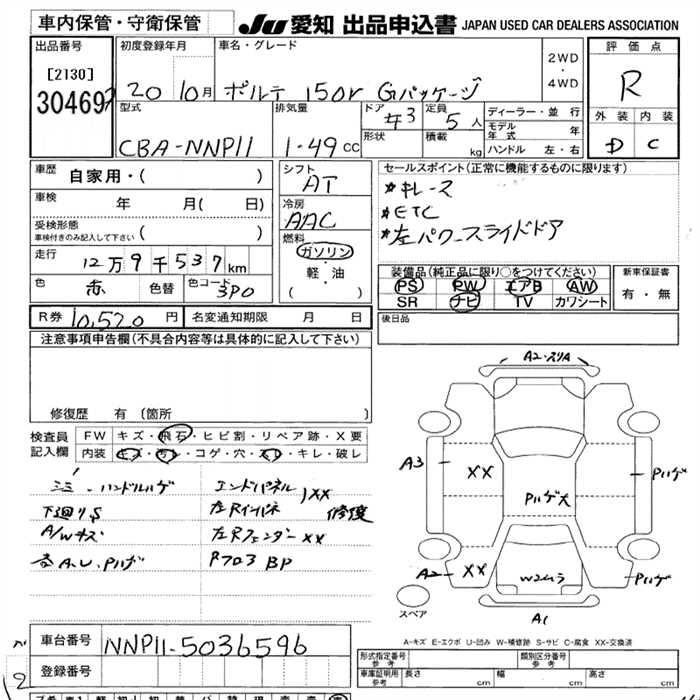 車内保管・守衛保管
JU 愛知 出品申込書 JAPAN USED CAR DEALERS ASSOCIATION
出品番号
[2130]
30469
初度登録年月
20 10月
車名・グレード
ポルテ 150r Gパッケージ
2WD
・
4WD
評価点
R
外装 内装
D C
型式
CBA-NNP11
排気量
1.49 CC
ドア
3
形状
定員
5人
積載
kg
ディーラー・並行
モデル年式 年
ハンドル 左・右
車歴
自家用・( )
車検
年 月( 日)
受検形態
車検付きのみ記入して下さい ( )
走行
12万9千537km
色
赤
色替
色コード
3P0
シフト
AT
冷房
AAC
燃料
ガソリン
・
軽・油
( )
セールスポイント(正常に機能するものに限ります)
*キレース
*ETC
*左パワースライドドア
装備品(純正品に限り○をつけてください)
PS PW エアB AW
SR ナビ TV カワシート
新車保証書
有・無
R券 10,520円
名変通知期限 月 日
後日品
注意事項申告欄(不具合内容等は具体的に記入して下さい)
修復歴 有 (箇所
検査員記入欄
FW キズ・飛石・ヒビ割・リペア跡・X要
内装 キズ・汚レ・コゲ・穴・スレ・キレ・破レ
ハンドルハゲ
下廻りS
A/Wキズ
各A.U.Pハゲ
エンドパネル XX
左Rインパネ 修復
左Rフェンダー XX
Rフロア BP
A2・スリA
A3
XX
Pハゲ大
Pハゲ
A2
XX
W2ムラ
Pハゲ
A1
スペア
A-キズ E-エクボ U-凹み W-補修跡 S-サビ C-腐食 XX-交換済
車台番号
NNP11-5036596
登録番号
形式指定番号
参考
類別区分番号
参考
車庫証明用
参考
長さ cm
幅 cm
高さ cm